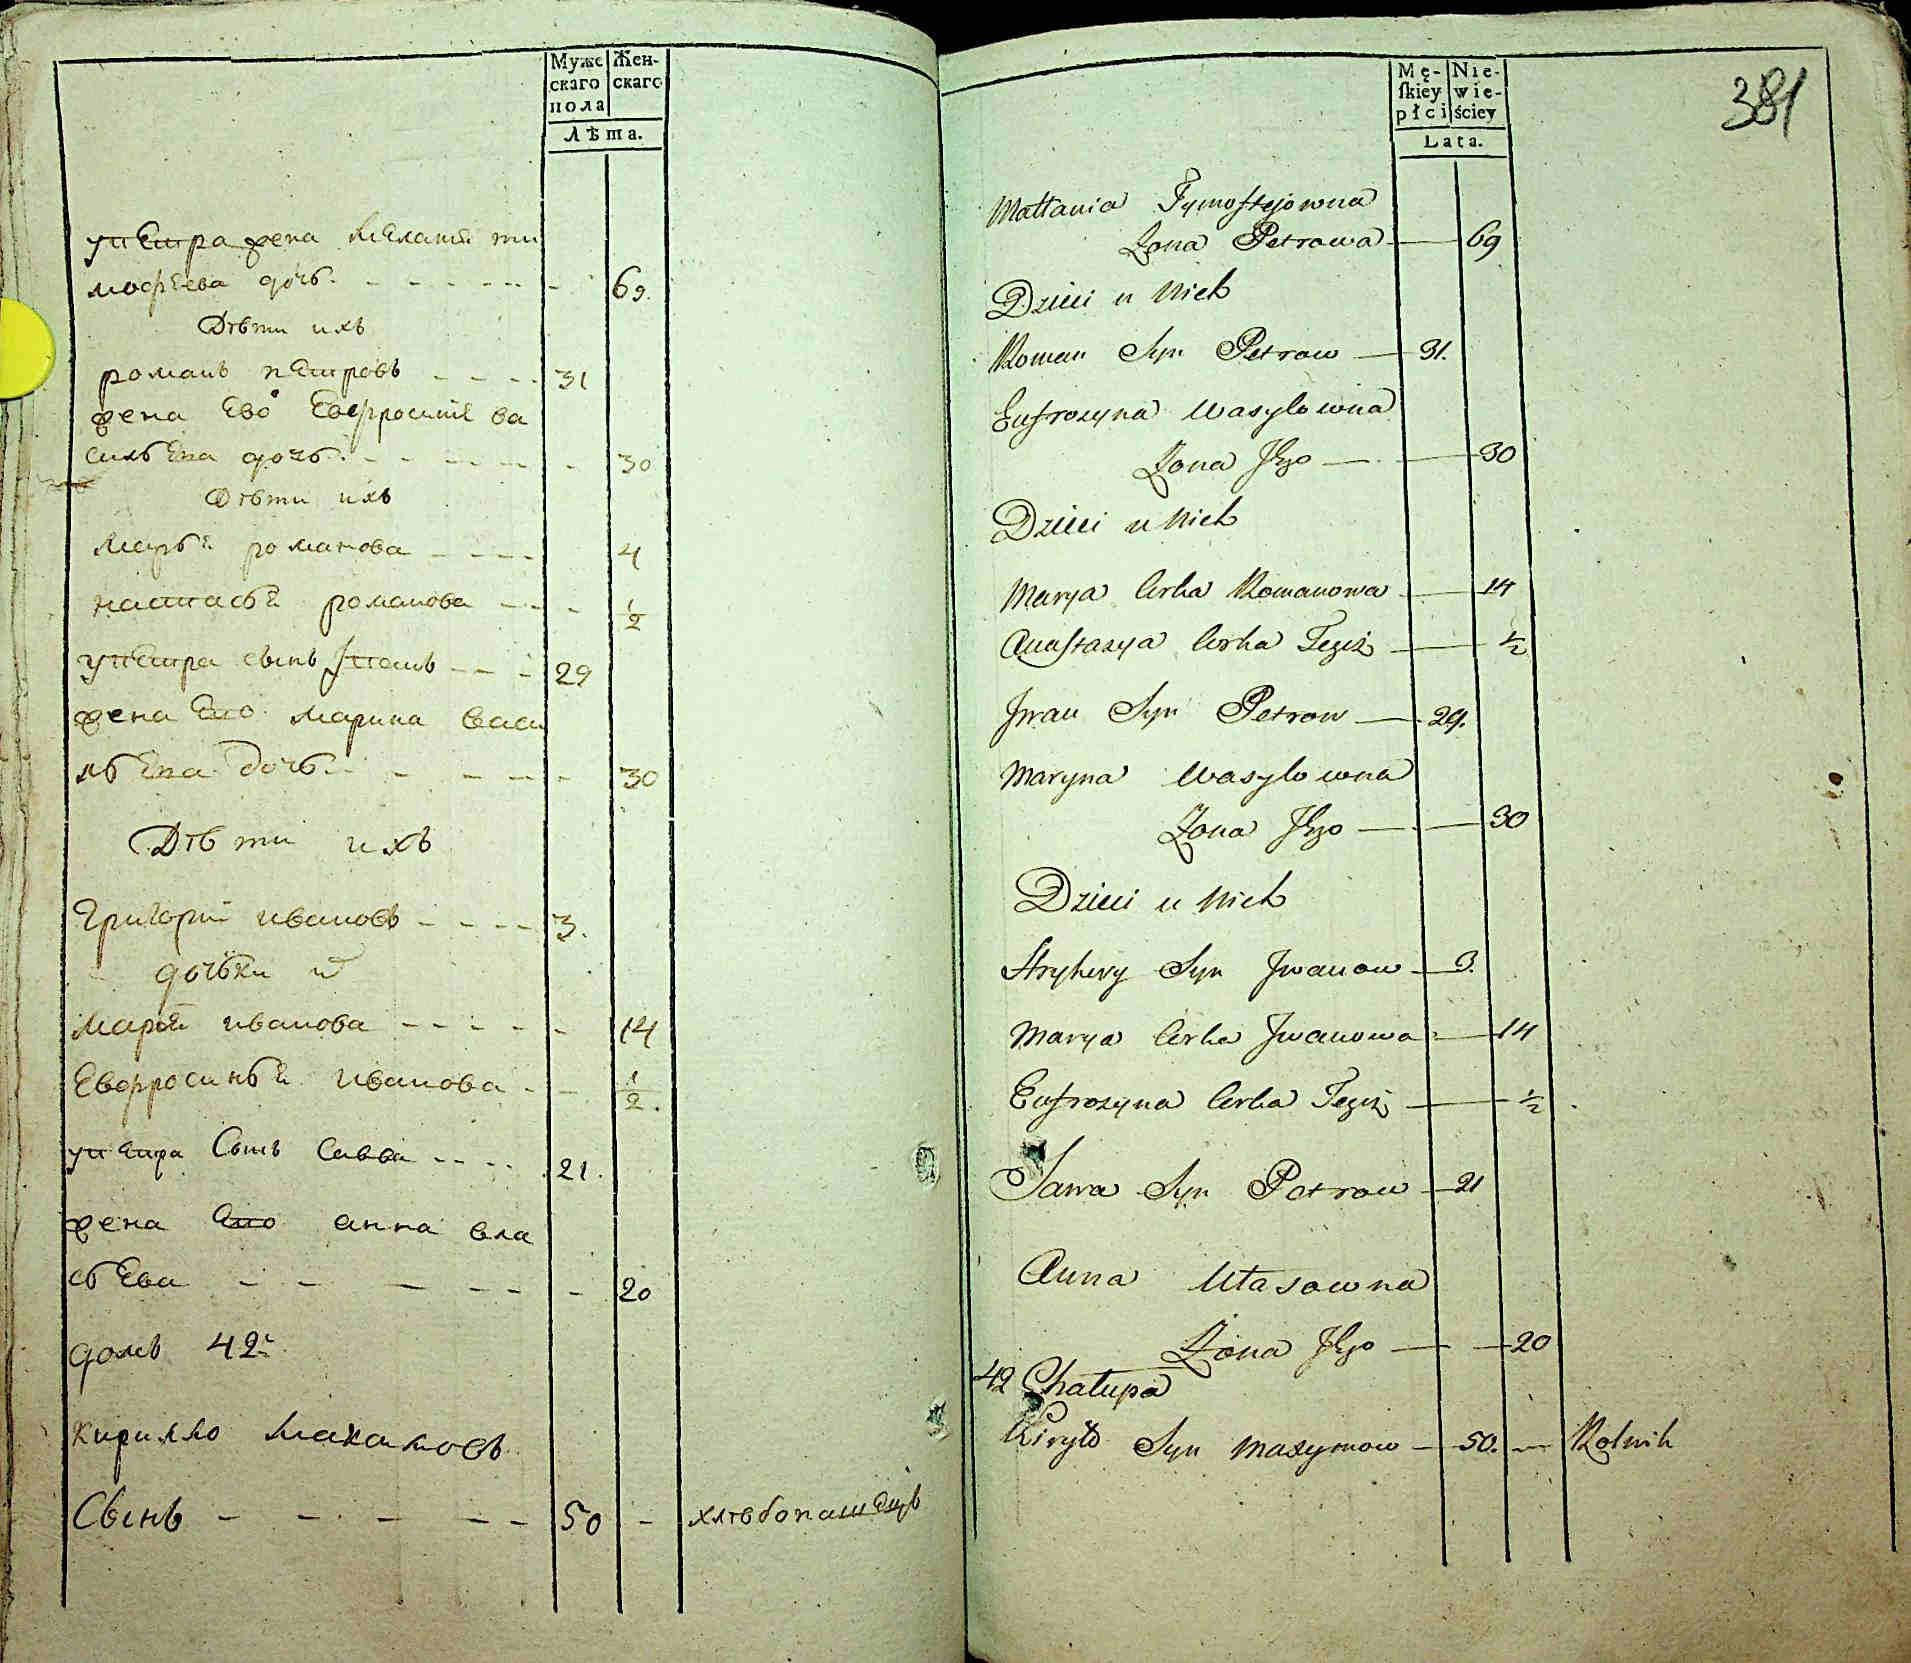 Муже
скаго
пола
Жен-
скаго
Лѣта.
упетра жена Меланія ти
мофеева дочь. 69.
Дѣти ихъ
романъ петровъ 31
жена Ево Евфросинія ва
сильева дочь. 30
Дѣти ихъ
марья романова 4
настасья романова 1/2
упетра сынъ Иванъ 29
жена Его марина васи
льева дочь. 30
Дѣти ихъ
Григорій ивановъ 3.
дочьки
марья иванова 14
Евфросинья иванова 1/2.
упетра Сынъ Савва 21.
жена Его анна вла
сьева 20
домъ 42й
кирилло Макаимовъ
Сынъ 50 хлѣбопашецъ
Mę-
skiey
płci
Nie-
wie-
ściey
Lata.
381
Małania Tymofiejowna
Żona Petrowa 69
Dzieci u Nich
Roman Syn Petrow 31.
Eufrozyna Wasylowna
Żona Jego 30
Dzieci u Nich
Marya Corka Romanowa 14
Anastazya Corka Tegiż 1/2
Jwan Syn Petrow 29.
Maryna Wasylowna
Żona Jego 30
Dzieci u Nich
Hryhory Syn Jwanow 3.
Marya Corka Jwanowa 14
Eufrozyna Corka Tegiż 1/2
Sawa Syn Petrow 21
Anna Własowna
Żona Jego 20
42 Chałupa
Kiryło Syn Maxymow 50. Rolnik